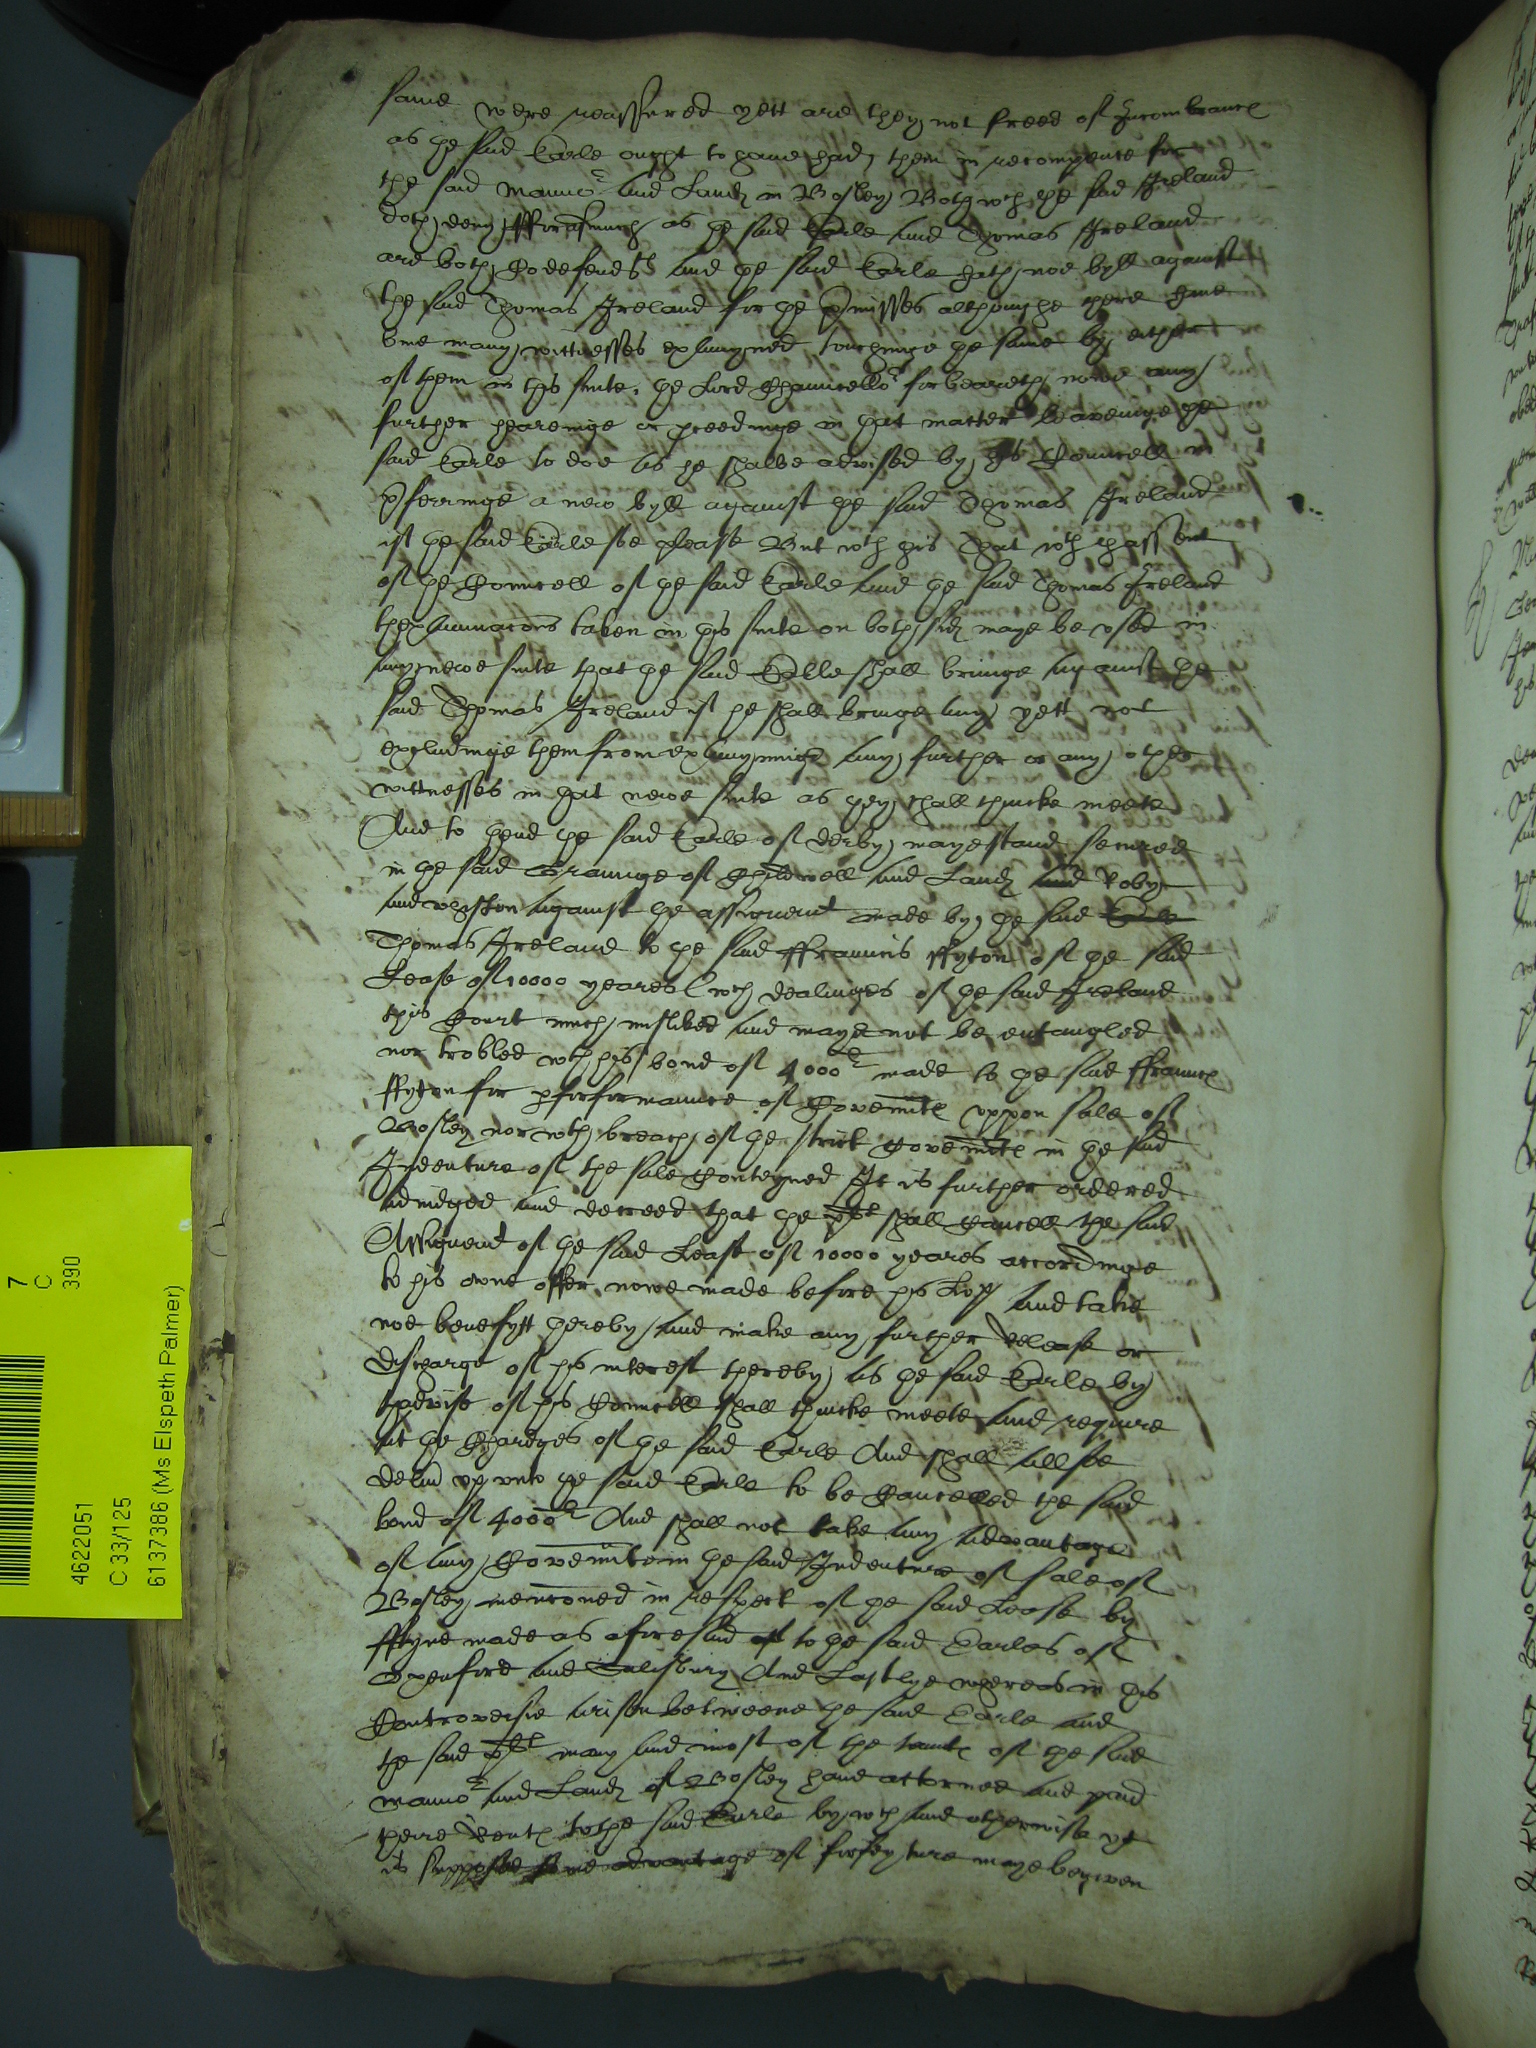 same were reassured yett are they not freed of Incombrance
as the said Earle ought to haue had them in recompence for
the said manno:r and Land in Bosley Both wch the said Ireland
doth deny fforasmuch as the said Earle and Thomas Ireland
are both Codefendts and the said Earle hath noe byll against
the said Thomas Ireland for the p'misses althoughe there haue
bine many wittnesses examyned touchinge the same by either
of them in this suite, the Lord Chauncello:r forbeareth nowe any
further heareinge or p'ceedinge in that matter leaveinge the
said Earle to doe as he shalbe advised by his Councell in
p'ferringe a new byll against the said Thomas Ireland
if the said Earle soe please But wth this That wth thassent
of the Councell of the said Earle and the said Thomas Ireland
thexaminacons taken in this suite on both sid maye be vsed in
any newe suite that the said Earle shall bringe against the
said Thomas Ireland if he shall bringe any yett not
excludinge them from examyninge any further or any other
wittnesses in that newe suite as they shall thincke meete
And to thend the said Earle of derby maye stand secured
in the said Graunge of Childwell and Land and Roby
and whiston against the assignemt made by the said Earle
Thomas Ireland to the said ffrauncis ffyton of the said
Lease of 10000 yeares (wch dealinges of the said Ireland
this Court much misliked and maye not be entangled
nor trobled wth his bond of 4000l made to the said ffraunc
ffyton for p'forformaunce of Covennte vppon sale of
Bosley nor wth breach of the strict Covennte in the said
Indenture of the sale Conteyned It is further ordered
adiudged and decreed that the plt shall Cancell the said
Assignemt of the said Lease of 10000 yeares accordinge
to his owne offer nowe made before his Lop and take
noe benefytt thereby and make any further Release or
discharge of his interest thereby as the said Earle by
thadvise of his Councell shall thincke meete and require
att the Chardges of the said Earle And shall allsoe
deliu' vp vnto the said Earle to be Cancelled the said
bond of 4000l And shall not take any advantage
of any Covennte in the said Indenture of sale of
Bosley mencioned in respect of the said Lease by
ffyne made as aforesaid of to the said Earles of
Oxenford and Salisbury And Lastlye whereas in this
Controversie arisen betweene the said Earle and
the said plt many and most of the tennte of the said
manno:r and Land of Bosley haue attorned and paid
theire Rente to the said Earle by wch and otherwise yt
is supposed some advantage of forfeyture maye be given
46622051
C 33/125
6137386 (Ms Elspeth Palmer)
7
C
390